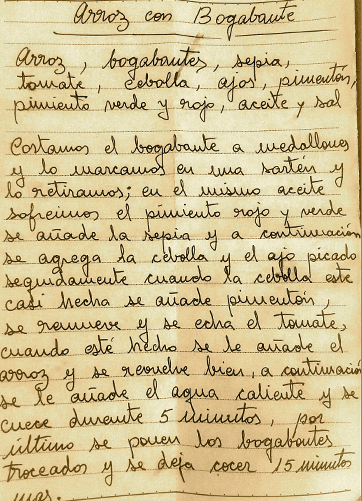 Arroz con Bogabante
Arroz, bogabantes, sepia,
tomate, cebolla, ajos, pimentón,
pimiento verde y rojo, aceite y sal
Cortamos el bogabante a medallones
y lo marcamos en una sartén y
lo retiramos; en el mismo aceite
sofreimos el pimiento rojo y verde
se añade la sepia y a continuación
se agrega la cebolla y el ajo picado
seguidamente cuando la cebolla este
casi hecha se añade pimentón,
se remueve y se echa el tomate,
cuando esté hecho se le añade el
arroz y se revuelve bien, a continuación
se le añade el agua caliente y se
cuece durante 5 minutos, por
último se ponen los bogabantes
troceados y se deja cocer 15 minutos
mas.